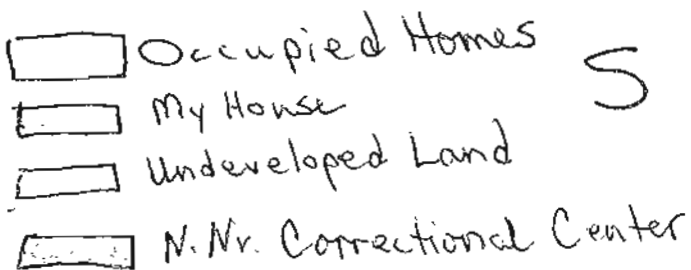 Occupied Homes
S
My House
Undeveloped Land
N. Nv. Correctional Center